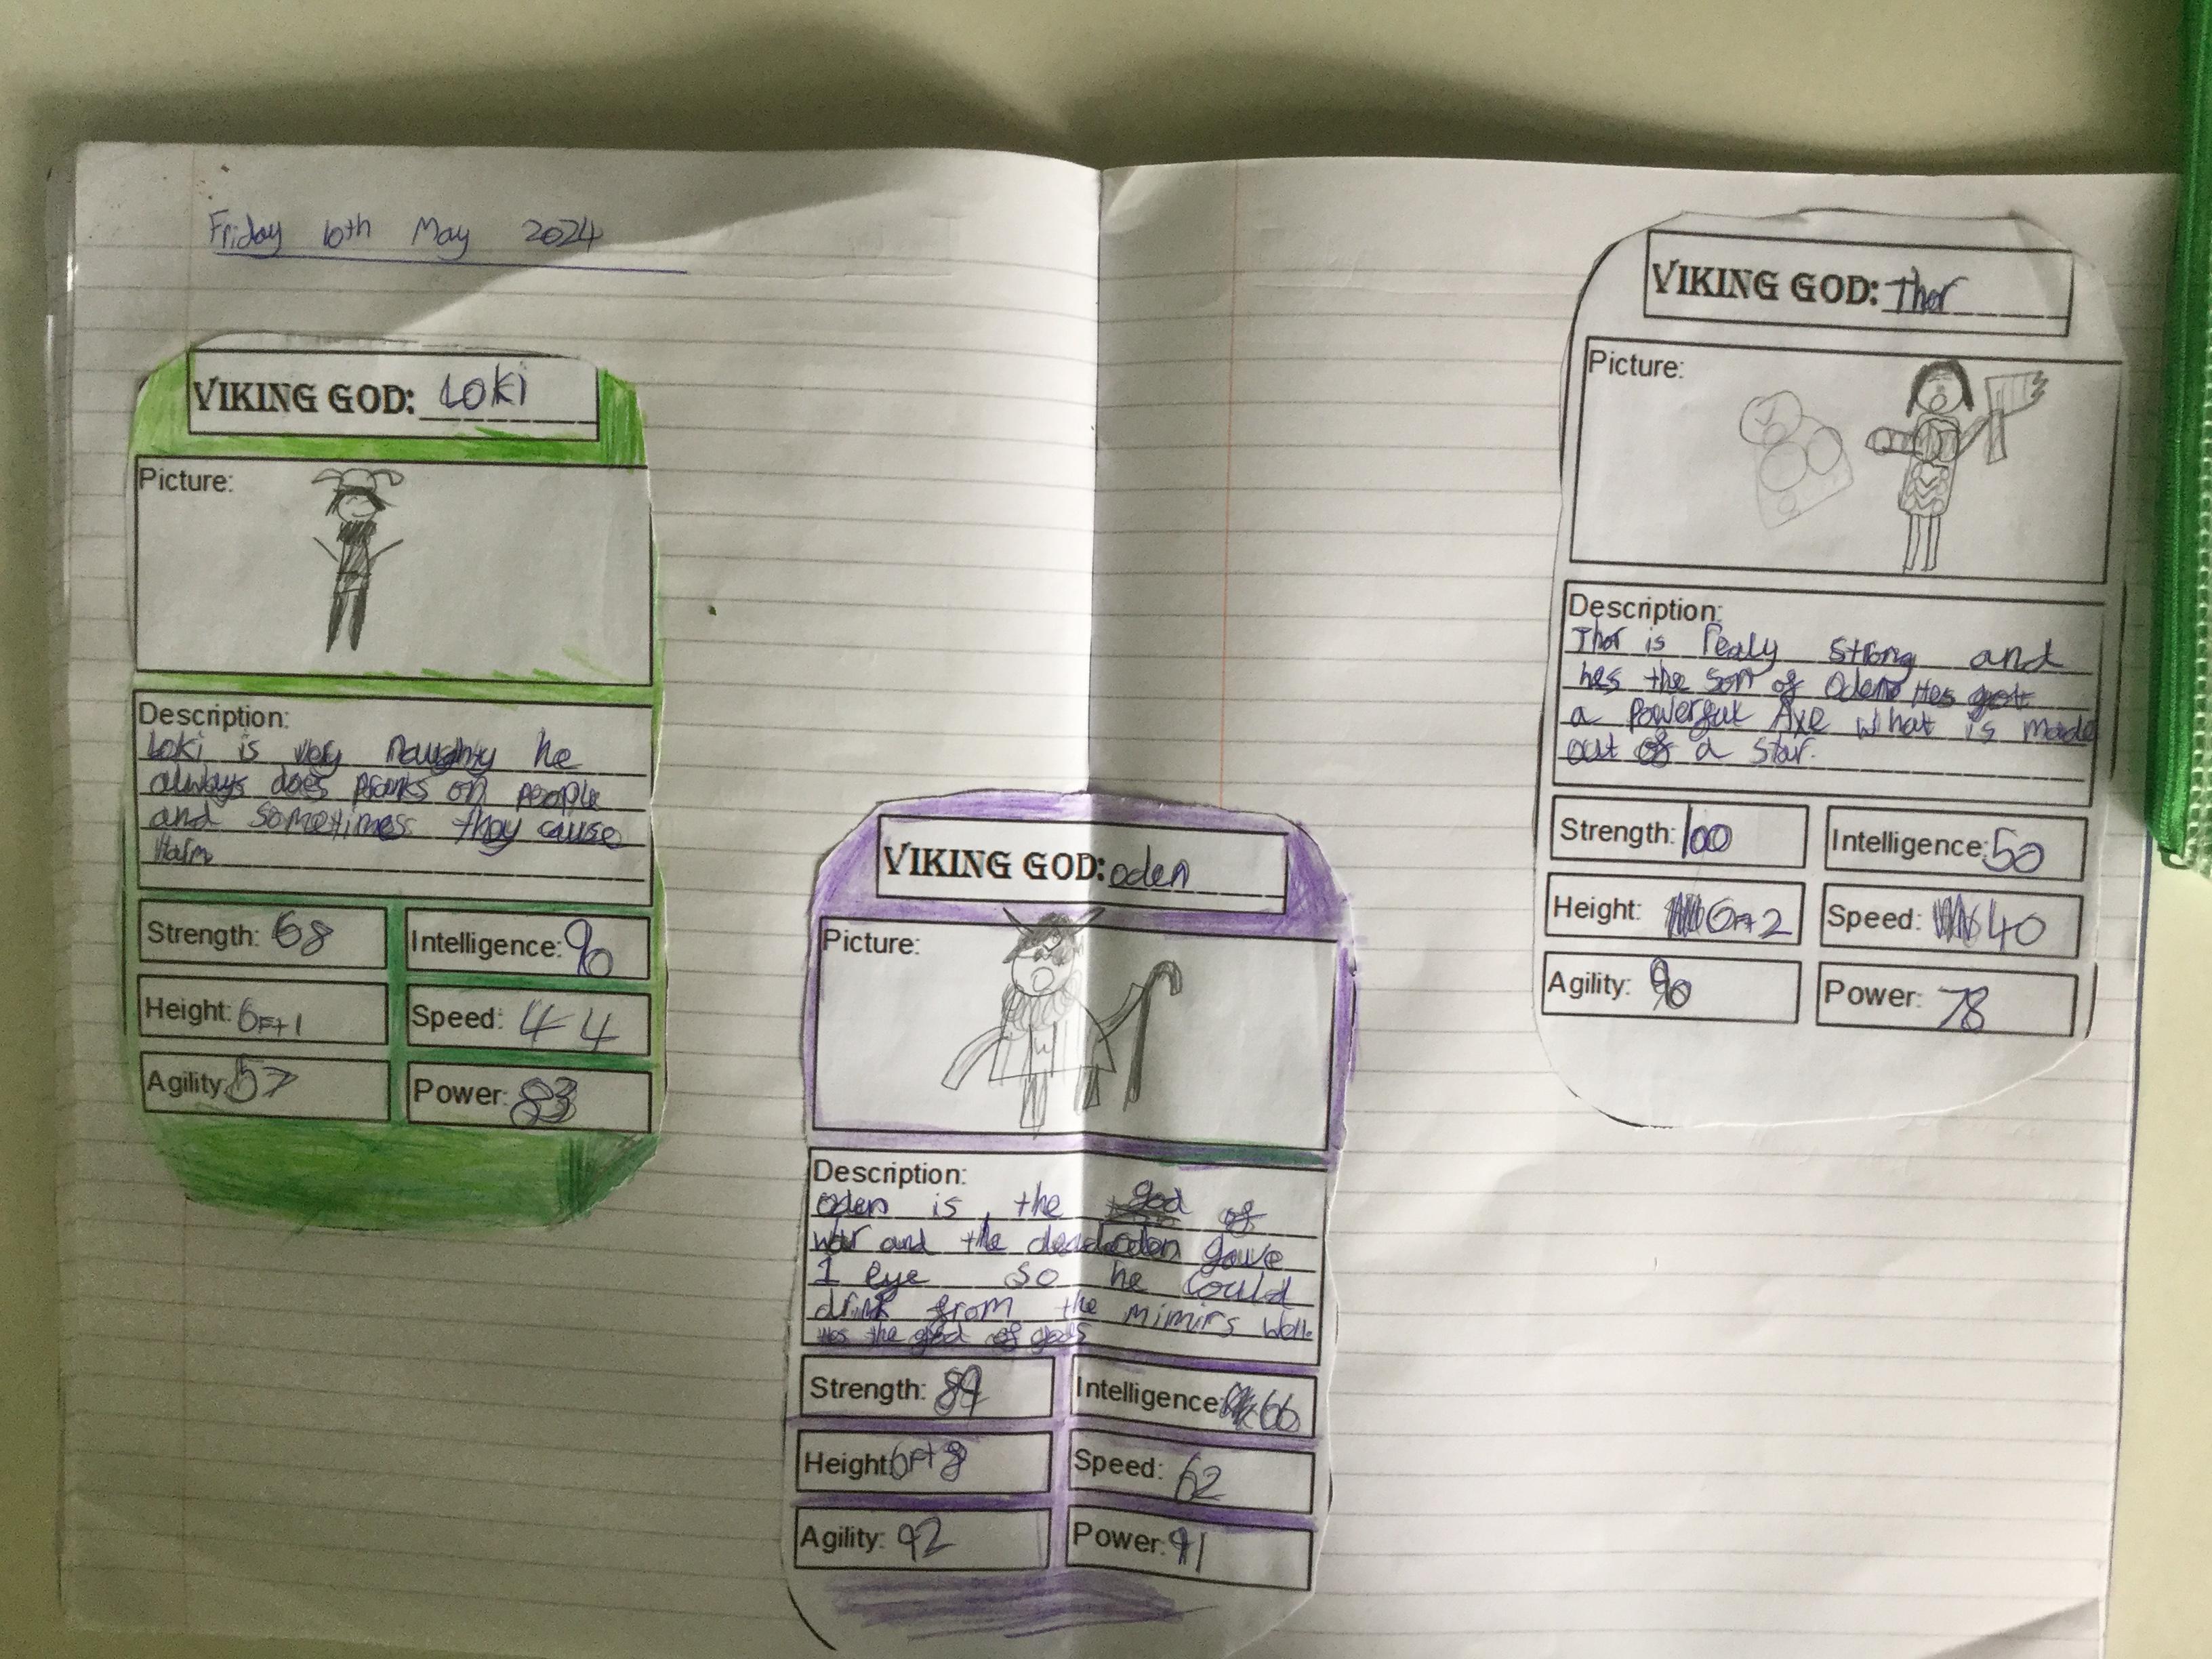 Friday 10th May 2024
VIKING GOD: Loki
Picture:
Description:
Loki is very Naughty he
always does pranks on people
and sometimes they cause
Harm
Strength: 68
Intelligence: 90
Height: 6Ft1
Speed: 44
Agility: 57
Power: 83
VIKING GOD: oden
Picture:
Description:
oden is the god of
war and the dead oden gave
1 eye so he could
drink from the mimirs well.
Hes the god of gods
Strength: 89
Intelligence: 66
Height: 6Ft 8
Speed: 62
Agility: 92
Power: 91
VIKING GOD: Thor
Picture:
Description:
Thor is realy strong and
hes the son of Oden Hes got
a Powerful Axe what is made
out of a star.
Strength: 100
Intelligence: 50
Height: 6Ft2
Speed: 40
Agility: 90
Power: 78